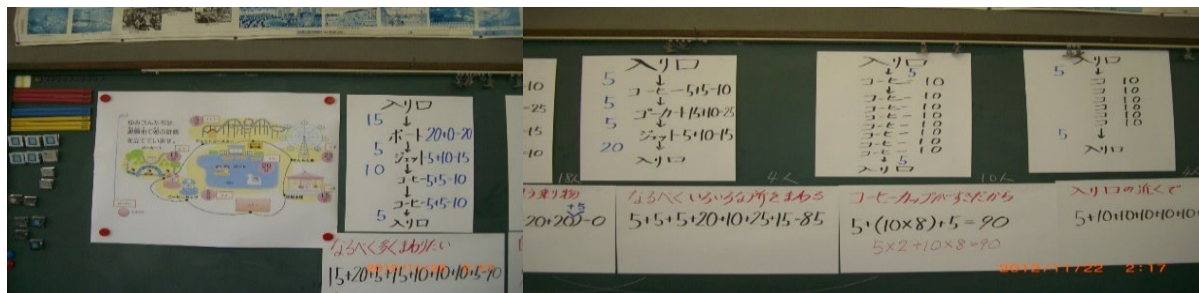 ゆみさんたちは、
遊園地で遊ぶ計画
を立てています。
入り口
15
↓
ボート 20+0-20
5
↓
ジェット5+10-15
10
↓
コーヒー5+5-10
↓
コーヒー5+5-10
5
↓
入り口
なるべく多くまわりたい
15+20+5+15+10+10+10+5-90
-25
-15
-10
18人
う乗り物
+5
20+20)-0
入り口
5
↓
コーヒー5+5-10
5
↓
ゴーカート15+10-25
5
↓
ジェット5+10-15
20
↓
入り口
4人
なるべくいろいろな所をまわる
5+5+5+20+10+25+15-85
入り口
↓ 5
コーヒー 10
コーヒー 10
コーヒー 10
コーヒー 10
コーヒー 10
コーヒー 10
コーヒー 10
コーヒー 10
↓ 5
入り口
10人
コーヒーカップがすきだから
5+(10×8)+5=90
5×2+10×8=90
入り口
5
↓
コ 10
コ 10
コ 10
コ 10
コ 10
コ 10
5
↓
入り口
入り口の近くで
5+10+10+10+10+10
2012/11/22 2:17